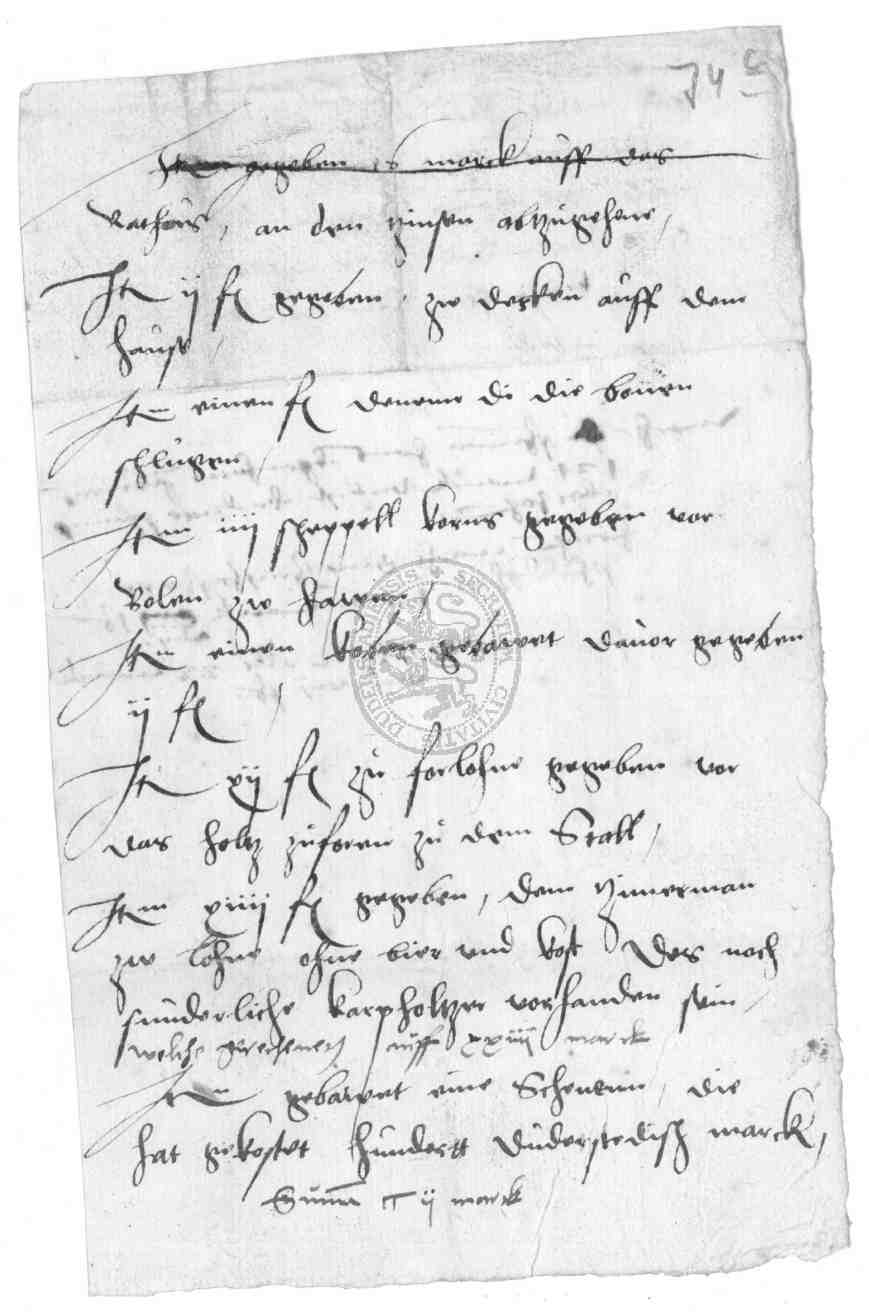 74 c
Item gegeben marck auff das
Rathaus, an den zinsen abtzugehene,
Jtem ij fl gegeben, zw decken auff dem
hause
Jtem einen fl denenn di die
schlugen,
Jtem iiij scheppell korns gegeben vor
Bolen zw hawen,
Jtem einen koben gebawet dauor gegeben
ij fl,
Jtem xij fl zu forlohne gegeben vor
das holtz zuforen zu dem Stall,
Jtem xiiij fl gegeben, dem zimerman
zw lohne ohne bier vnd kost Des noch
sunderliche karpholtzer vorhanden sein,
welchs gerechenet auff xxiiij marck
Jtem gebawet eine Scheunen, die
hat gekostet hundertt Duderstedisch marck,
Summa C ij marck
SECR
CIVITATIS
DUDERSTADENSIS